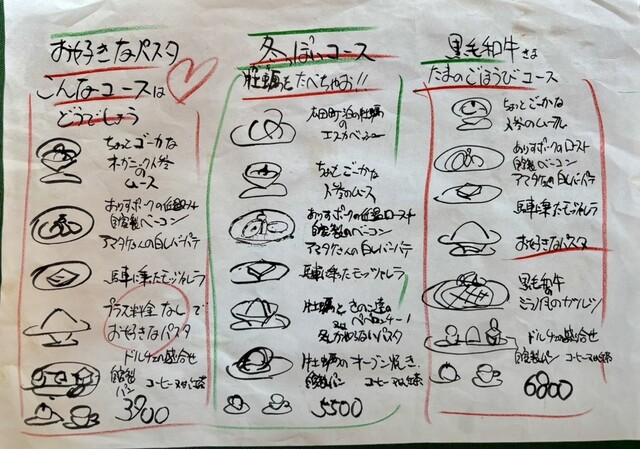 お好きなパスタ
こんなコースは
どうでしょう
ちょっとゴーかな
オーガニック人参
の
ムース
ありすポークの低温ロースト
自家製ベーコン
アマタケさんの白レバーパテ
馬車に乗ったモッツァレラ
プラス料金なしで
お好きなパスタ
ドルチェの盛合せ
自家製
パン
コーヒーor紅茶
3900
冬っぽいコース
牡蠣もたべちゃお!!
の
エスカベッシュ
ちょっとごーかな
人参のムース
ありすポークの低温ロースト
自家製のベーコン
アマタケさんの白レバーパテ
馬車に乗ったモッツァレラ
牡蠣ときのこ達の
ペペロンチーノ
パスタ
牡蠣のオーブン焼き
自家製パン コーヒーor紅茶
5500
黒毛和牛さま
たまのごほうびコース
ちょっとごーかな
人参のムース
ありすポークのロースト
自家製ベーコン
アマタケさんの白レバーパテ
馬車に乗ったモッツァレラ
お好きなパスタ
黒毛和牛
ミラノ風のカツレツ
ドルチェの盛合せ
自家製パン コーヒーor紅茶
6800